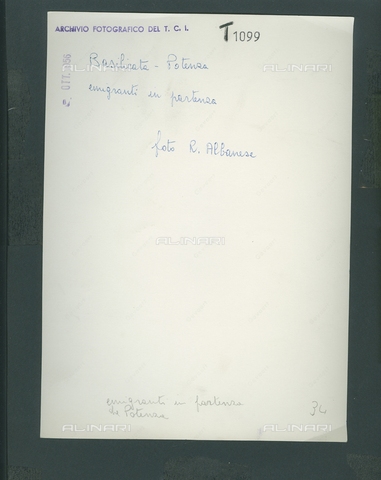 ARCHIVIO FOTOGRAFICO DEL T. C. I.
T 1099
Basilicata - Potenza
emigranti in partenza
foto R. Albanese
ALINARI
ALINARI
ALINARI
emigranti in partenza
da Potenza
34
ALINARI
ALINARI